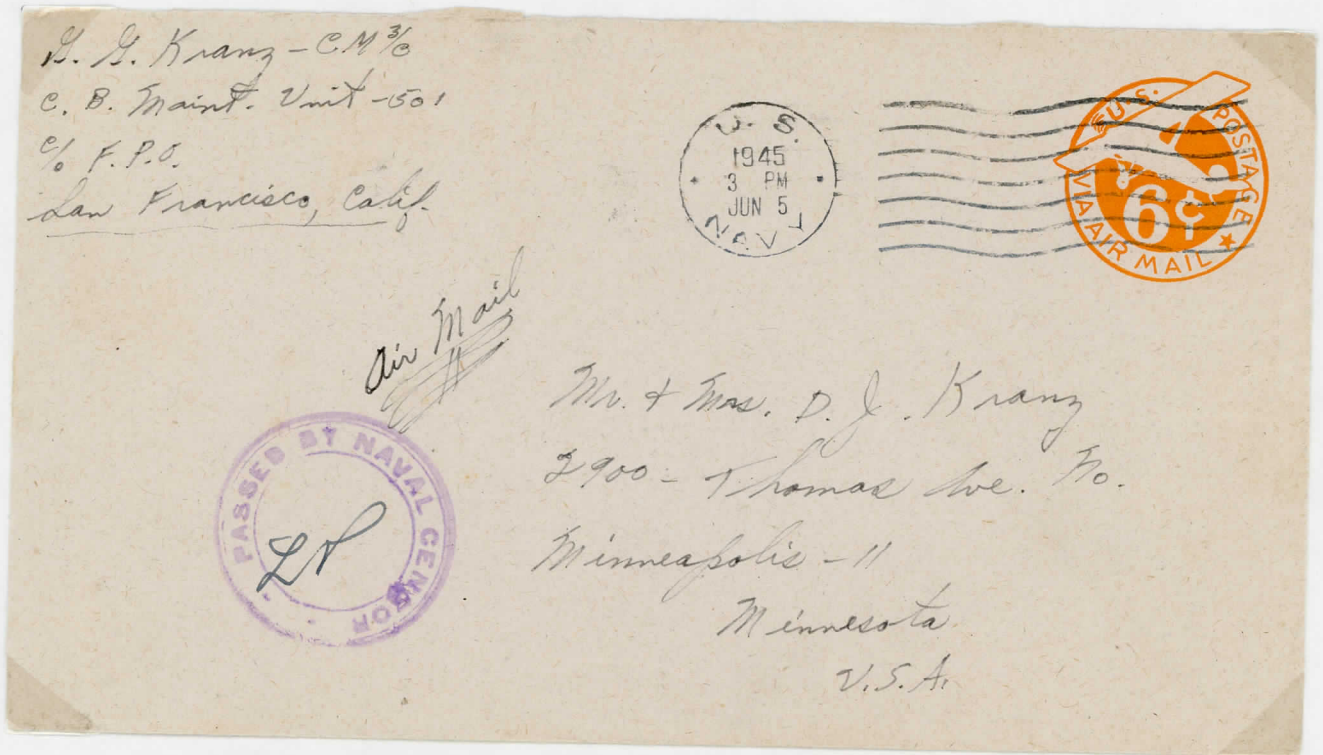 G. G. Kranz - C.M 3/c
C. B. Maint. Unit - 501
c/o F. P. O.
San Francisco, Calif.
U. S.
1945
3 PM
JUN 5
NAVY
U.S. POSTAGE
6¢
VIA AIR MAIL
Air Mail
PASSED BY NAVAL CENSOR
Mr. & Mrs. D. J. Kranz
2900 - Thomas Ave. No.
Minneapolis - 11
Minnesota
U.S.A.